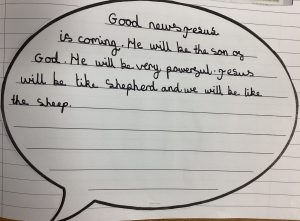 Good news Jesus
is coming. He will be the son of
God. He will be very powerful. Jesus
will be like Shepherd and we will be like
the sheep.